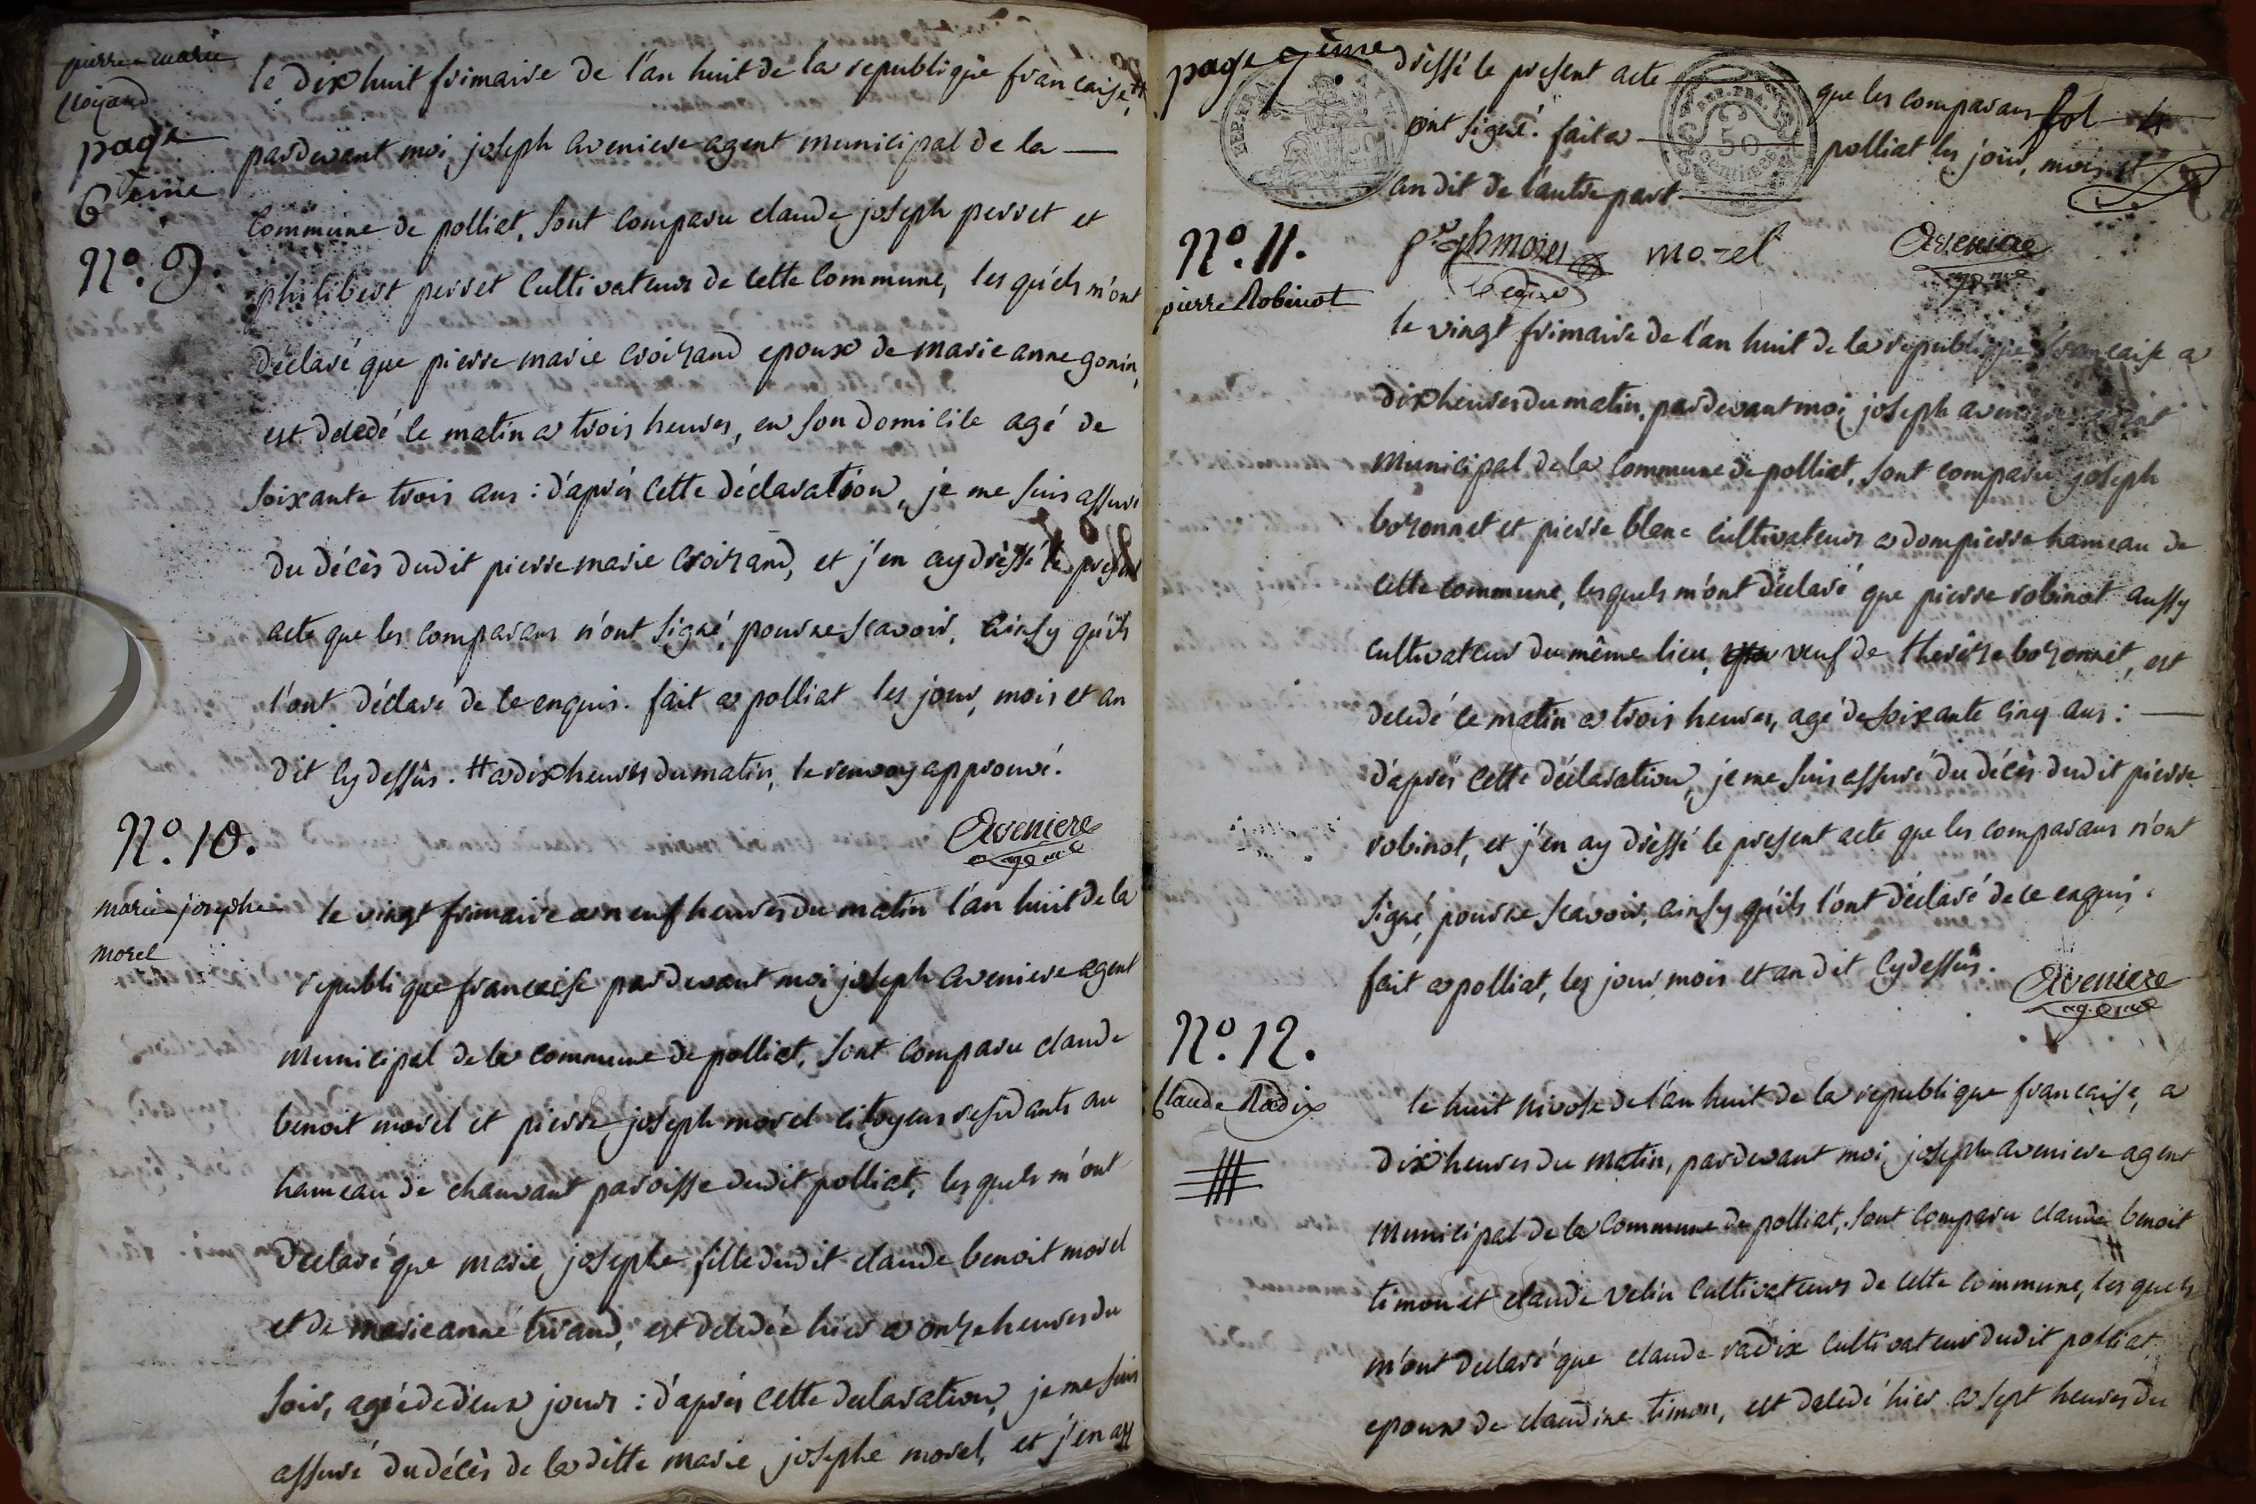 pierre marie
page
6eme
N.º 9.
le dix huit frimaire de l'an huit de la republique française, #
pardevant moi joseph aveniere agent municipal de la —
commune de polliat, sont comparu claude joseph perret et
philibert perret cultivateurs de cette commune, lesquels m'ont
déclaré que pierre marie croizand epoux de marie anne gonin,
est decedé le matin a trois heures, en son domicile agé de
soixante trois ans : d'aprés cette déclaration, je me suis assuré
du décès dudit pierre marie croizand, et j'en ay dressé le present
acte que les comparans n'ont signé, pour ne scavoir, ainsy qu'ils
l'ont déclaré de ce enquis. fait a polliat les jour, mois et an
dit cy dessûs. # a dix heures du matin, le renvoy approuvé.
Aveniere
agent
N.º 10.
marie josephe
morel
le vingt frimaire a neuf heures du matin l'an huit de la
republique francaise pardevant moi joseph aveniere agent
municipal de la commune de polliat, sont comparu claude
benoit morel et pierre joseph morel citoyens residants au
hameau de chanvant paroisse dudit polliat, lesquels m'ont
declaré que marie josephe fille dudit claude benoit morel
et de marieanne tivand, est decedée hier a onze heures du
soir, agée de deux jours : d'aprés cette declaration, je me suis
assuré du décès de la ditte marie josephe morel, et j'en ay
page 7eme
dressé le present acte — que les comparans fol 4
ont signé. fait a — polliat les jour, mois et
an dit de l'autre part —
REP. FRA.
50
morel
Aveniere
N.º 11.
pierre Robinot
le vingt frimaire de l'an huit de la republique francaise a
dix heures du matin, pardevant moi joseph aveniere agent
municipal de la commune de polliat, sont comparu joseph
bozonnet et pierre blanc cultivateurs a dompierre hameau de
cette commune, lesquels m'ont déclaré que pierre robinot aussy
cultivateur du même lieu, veuf de therêse bozonnet, est
decedé le matin a trois heures, agé de soixante cinq ans : —
d'aprés cette déclaration, je me suis assuré du décès dudit pierre
robinot, et j'en ay dressé le present acte que les comparans n'ont
signé, pour ne scavoir, ainsy qu'ils l'ont déclaré de ce enquis.
fait a polliat, les jour mois et an dit cy dessûs.
Aveniere
agent
N.º 12.
Claude Radix
le huit nivose de l'an huit de la republique francaise, a
dix heures du matin, pardevant moi joseph aveniere agent
municipal de la commune de polliat, sont comparu claude benoit
timon et claude velin cultivateurs de cette commune, lesquels
m'ont declaré que claude radix cultivateur dudit polliat
epoux de claudine timon, est decedé hier a sept heures du